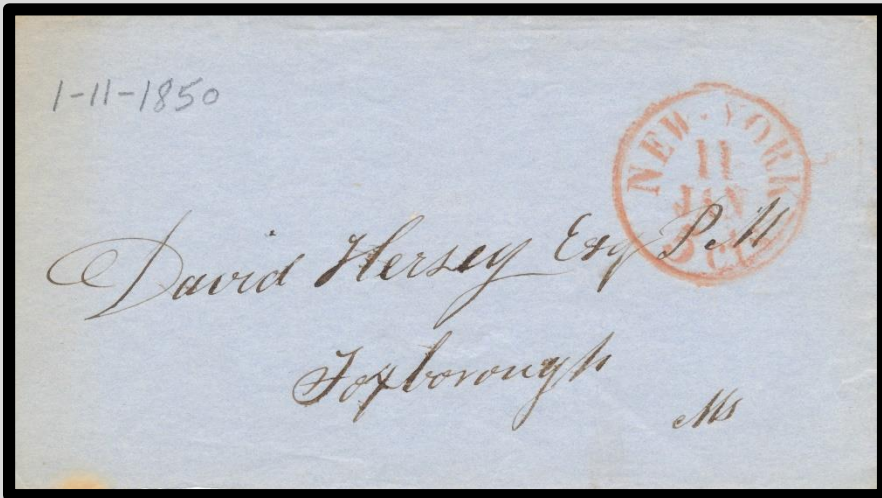 1-11-1850
NEW-YORK
11
JAN
David Hersey Esq P.M
Foxborough
Ms